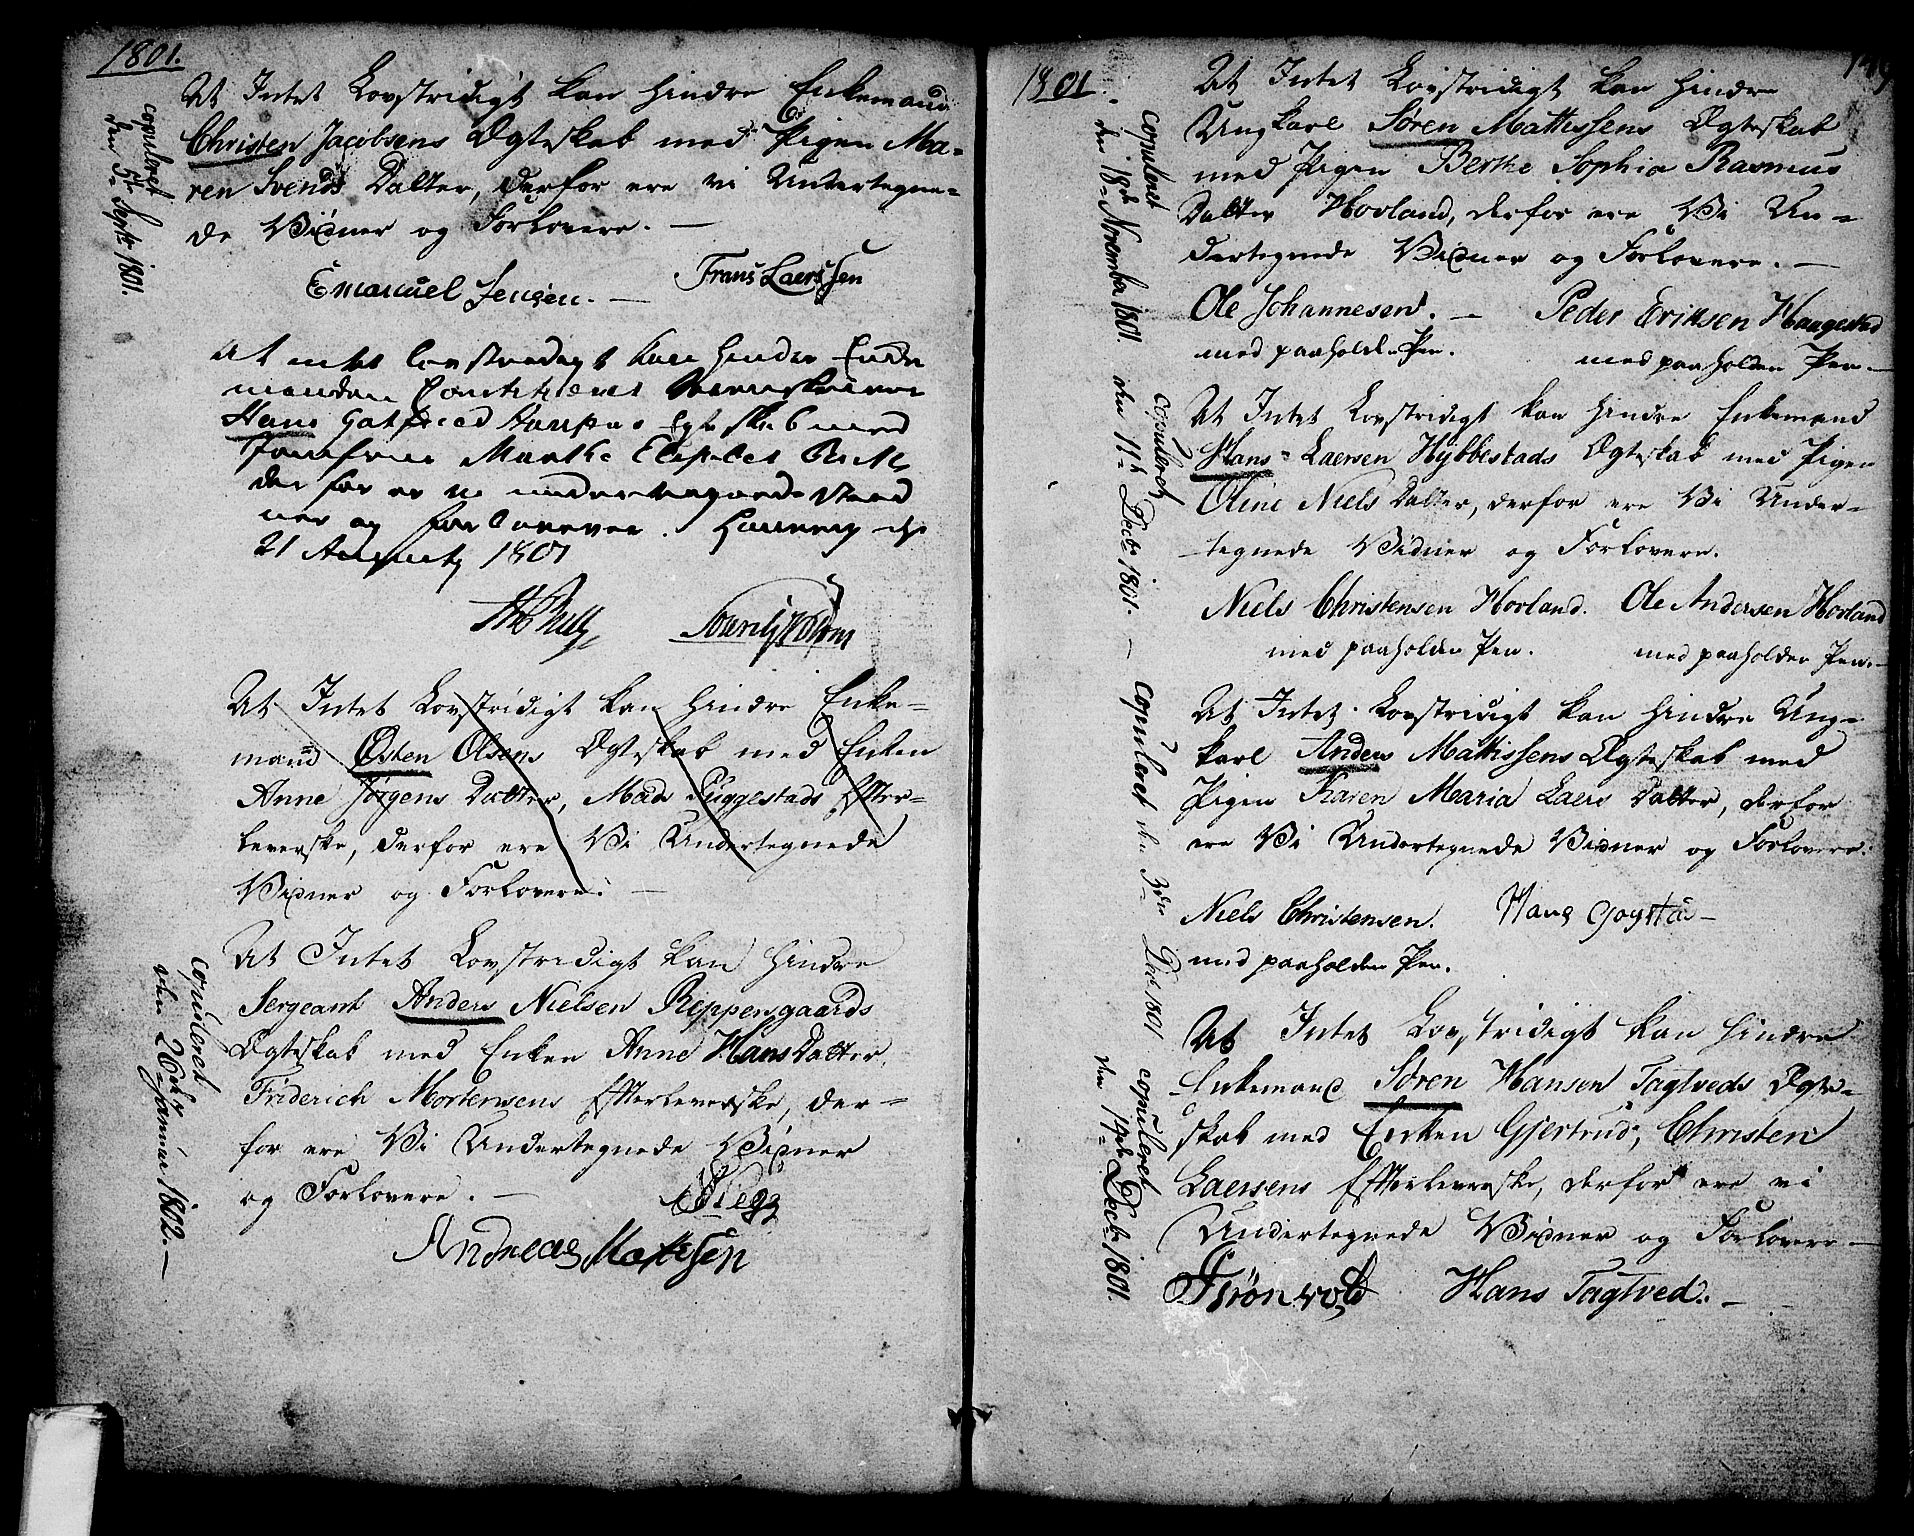 1801.
At Intet Lovstridigt kan hindre Enkemand
Christen Jacobsens Ægteskab med Pigen Ma-
ren Svends Datter, derfor ere vi Undertegne-
de Vidner og Forlovere. —
Emanuel Jensen. — Frans Laerssen
copuleret
den 5te Septr 1801.
At intet lovstridigt kan hindre Enke
manden
Hans Ægteskab med
Jomfrue Marthe
der for er vi undertegnede Vid
ner og forlovere.
21 Augusty 1801
At Intet Lovstridigt kan hindre Enke-
mand Østen Olsens Ægteskab med Enken
Anne Jørgens Datter, Mads Puggestads Efter-
leverske, derfor ere Vi Undertegnede
Vidner og Forlovere. —
At Intet Lovstridigt kan hindre
Sergeant Anders Nielsen Rippensgaards
Ægteskab med Enken Anne Hans Datter
Friderich Mortensens Efterleverske, der-
for ere Vi Undertegnede Vidner
og Forlovere. —
Andreas Mattisen
copuleret
den 26de Januar 1802. —
1801.
At Intet Lovstridigt kan hindre
Ungkarl Søren Mattissens Ægteskab
med Pigen Berthe Sophia Rasmus
Datter Hovland, derfor ere Vi Un-
dertegnede Vidner og Forlovere. —
Ole Johannesen. — Peder Eriksen Haugestad
med paaholden Pen. med paaholden Pen —
copuleret
den 18de November 1801.
At Intet Lovstridigt kan hindre Enkemand
Hans Laersen Hybbestads Ægteskab med Pigen
Oline Niels Datter, derfor ere Vi Under-
tegnede Vidner og Forlovere.
Niels Christensen Hovland. Ole Andersen Hovland
med paaholden Pen. med paaholden Pen. —
copuleret
den 11te Decbr 1801. —
At Intet Lovstridigt kan hindre Ung-
karl Anders Mattissens Ægteskab med
Pigen Karen Maria Laers Datter, derfor
ere Vi Undertegnede Vidner og Forlovere.
Niels Christensen. Hans
med paaholden Pen.
copuleret den Decbr 1801
At Intet Lovstridigt kan hindre
Enkemand Søren Hansen Tagtveds Ægte-
skab med Enken Gjertrud, Christen
Laersens Efterleverske, derfor ere vi
Undertegnede Vidner og Forlovere —
Hans Tagtved. —
copuleret
den 14de Decbr 1801.